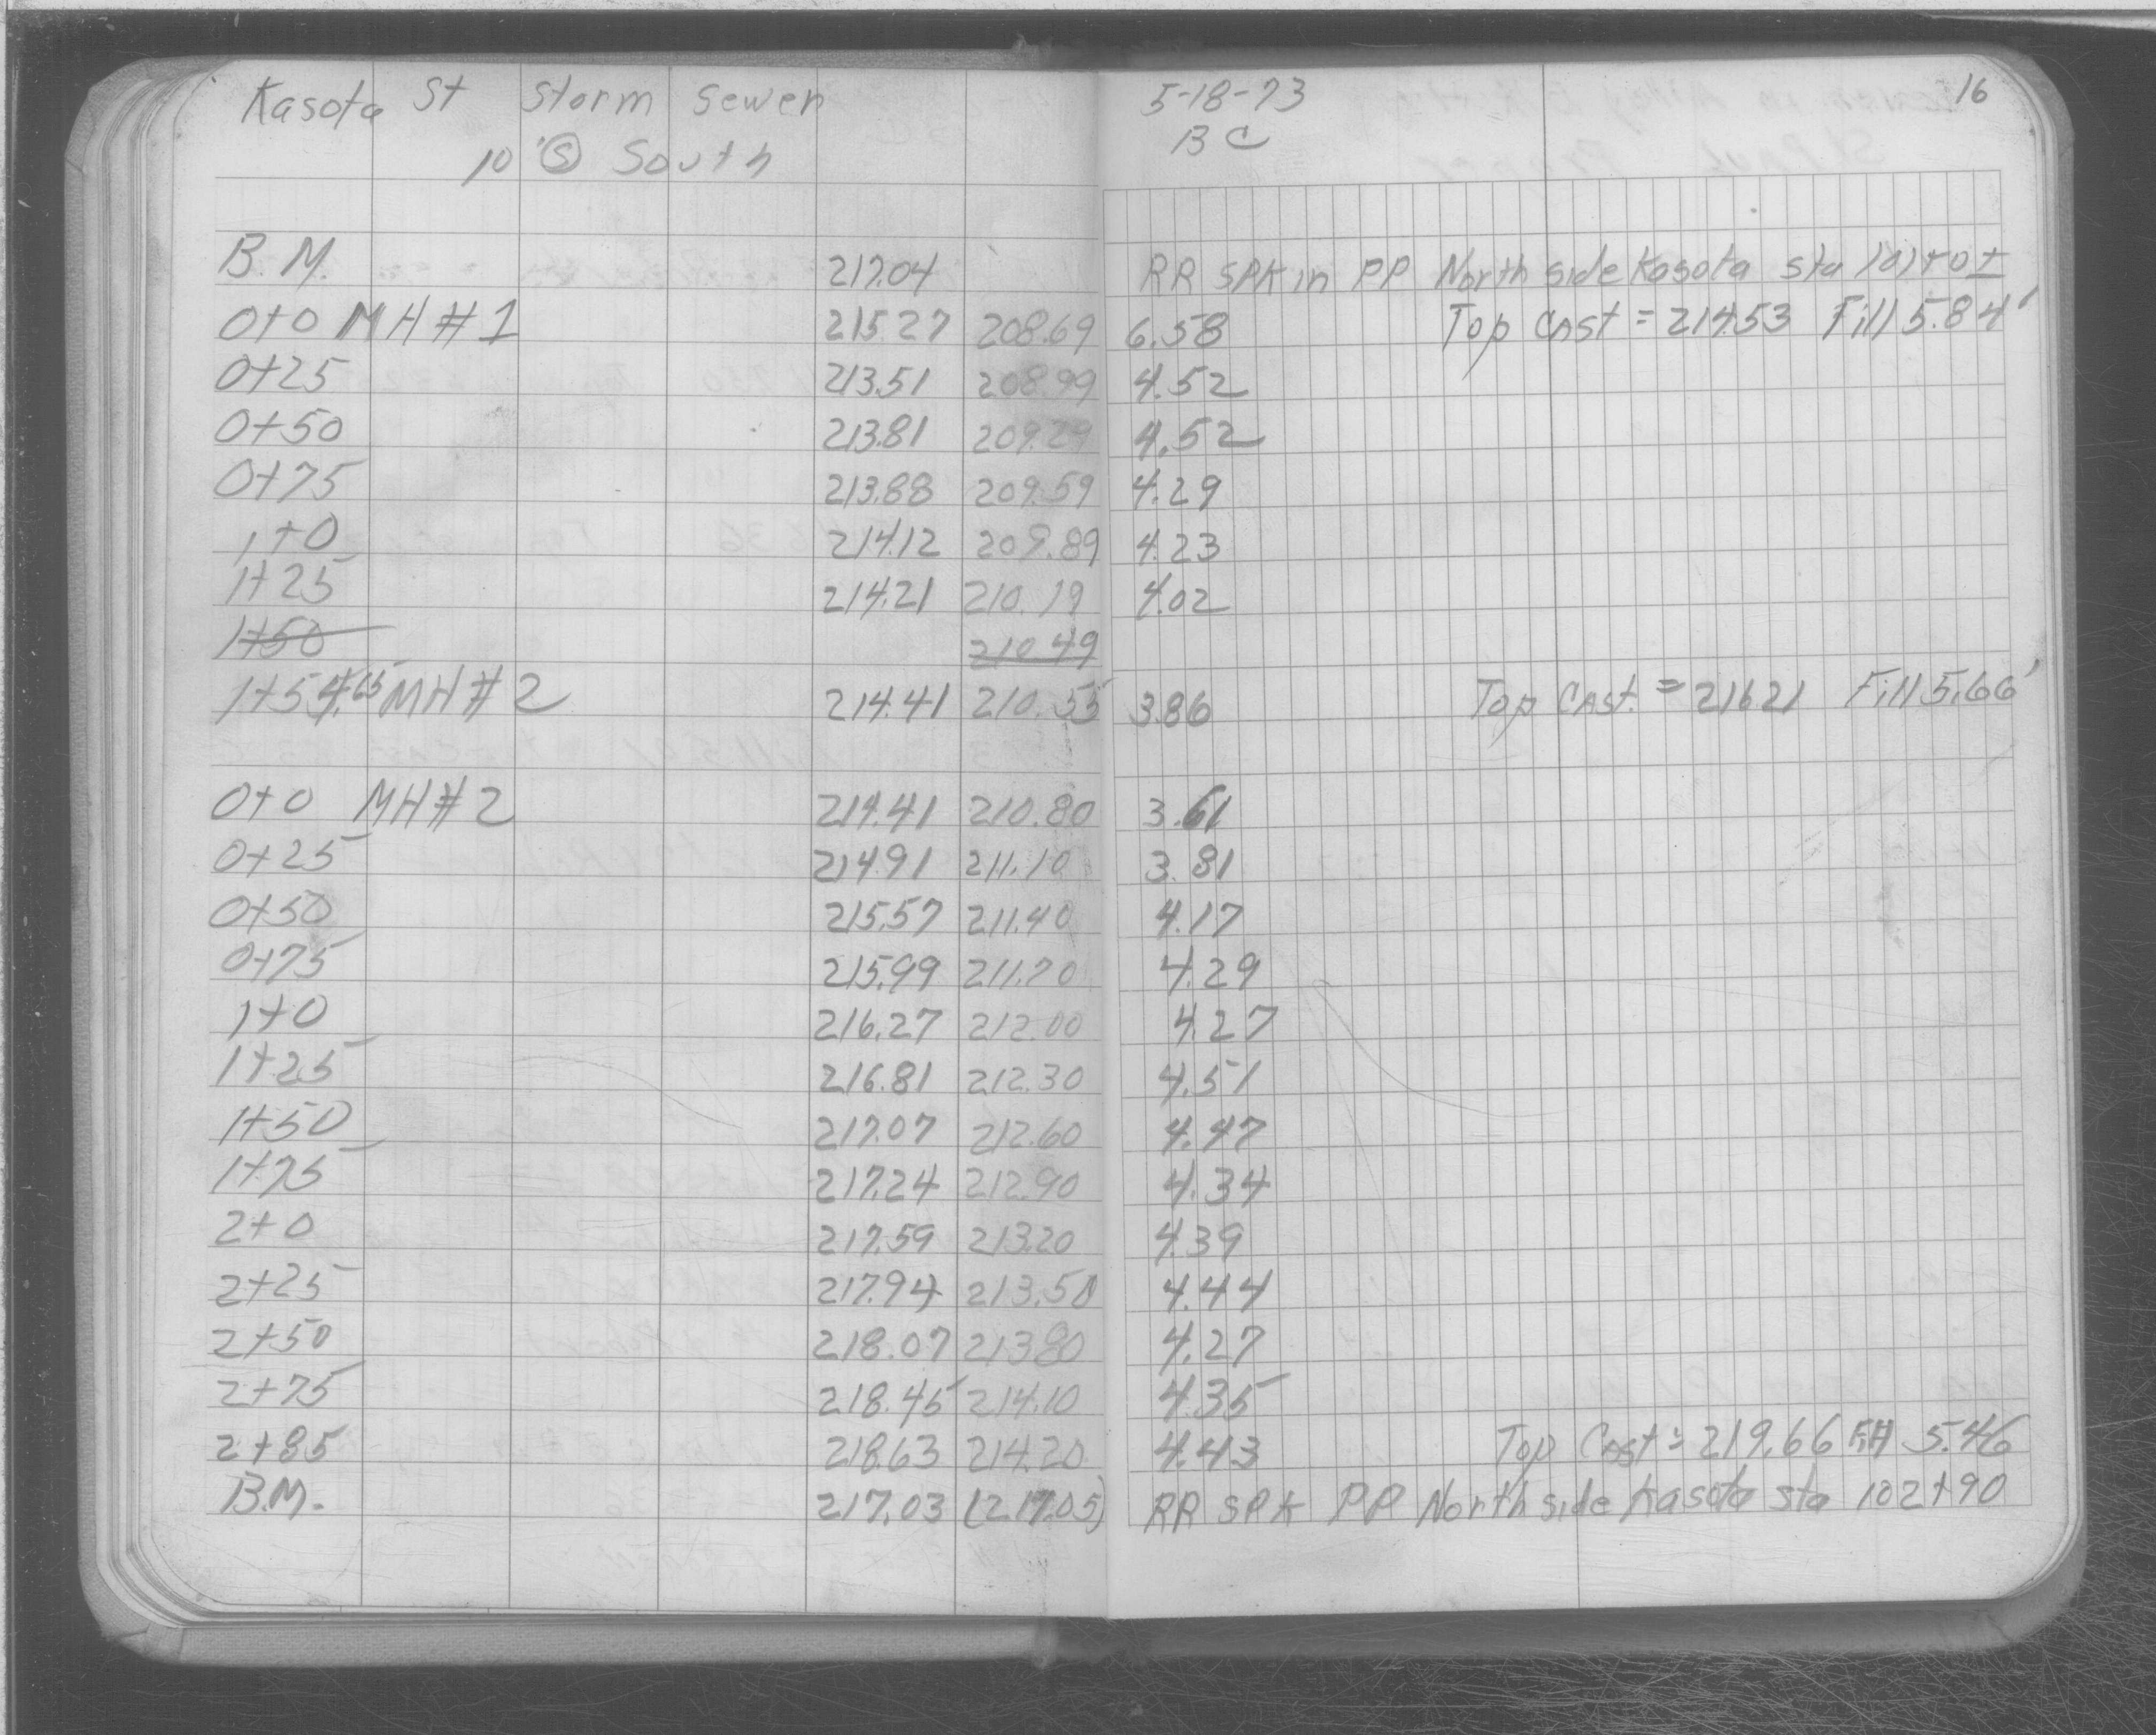 Kasota St Storm Sewer 5-18-73 16
10' Ⓢ South BC
B.M. 217.04 RR SPK in PP North side Kasota sta 101+0±
0+0 MH #1 215.27 208.69 6.58 Top Cast = 214.53 Fill 5.84'
0+25 213.51 208.99 4.52
0+50 213.81 209.29 4.52
0+75 213.88 209.59 4.29
1+0 214.12 209.89 4.23
1+25 214.21 210.19 4.02
1+50 210.49
1+54.65 MH #2 214.41 210.55 3.86 Top Cast. = 216 21 Fill 5.66'
0+0 MH #2 214.41 210.80 3.61
0+25 214.91 211.10 3.81
0+50 215.57 211.40 4.17
0+75 215.99 211.70 4.29
1+0 216.27 212.00 4.27
1+25 216.81 212.30 4.51
1+50 217.07 212.60 4.47
1+75 217.24 212.90 4.34
2+0 217.59 213.20 4.39
2+25 217.94 213.50 4.44
2+50 218.07 213.80 4.27
2+75 218.45 214.10 4.35
2+85 218.63 214.20 4.43 Top Cast = 219.66 Fill 5.46
B.M. 217.03 (217.05) RR SPK PP North side Kasota sta 102+90